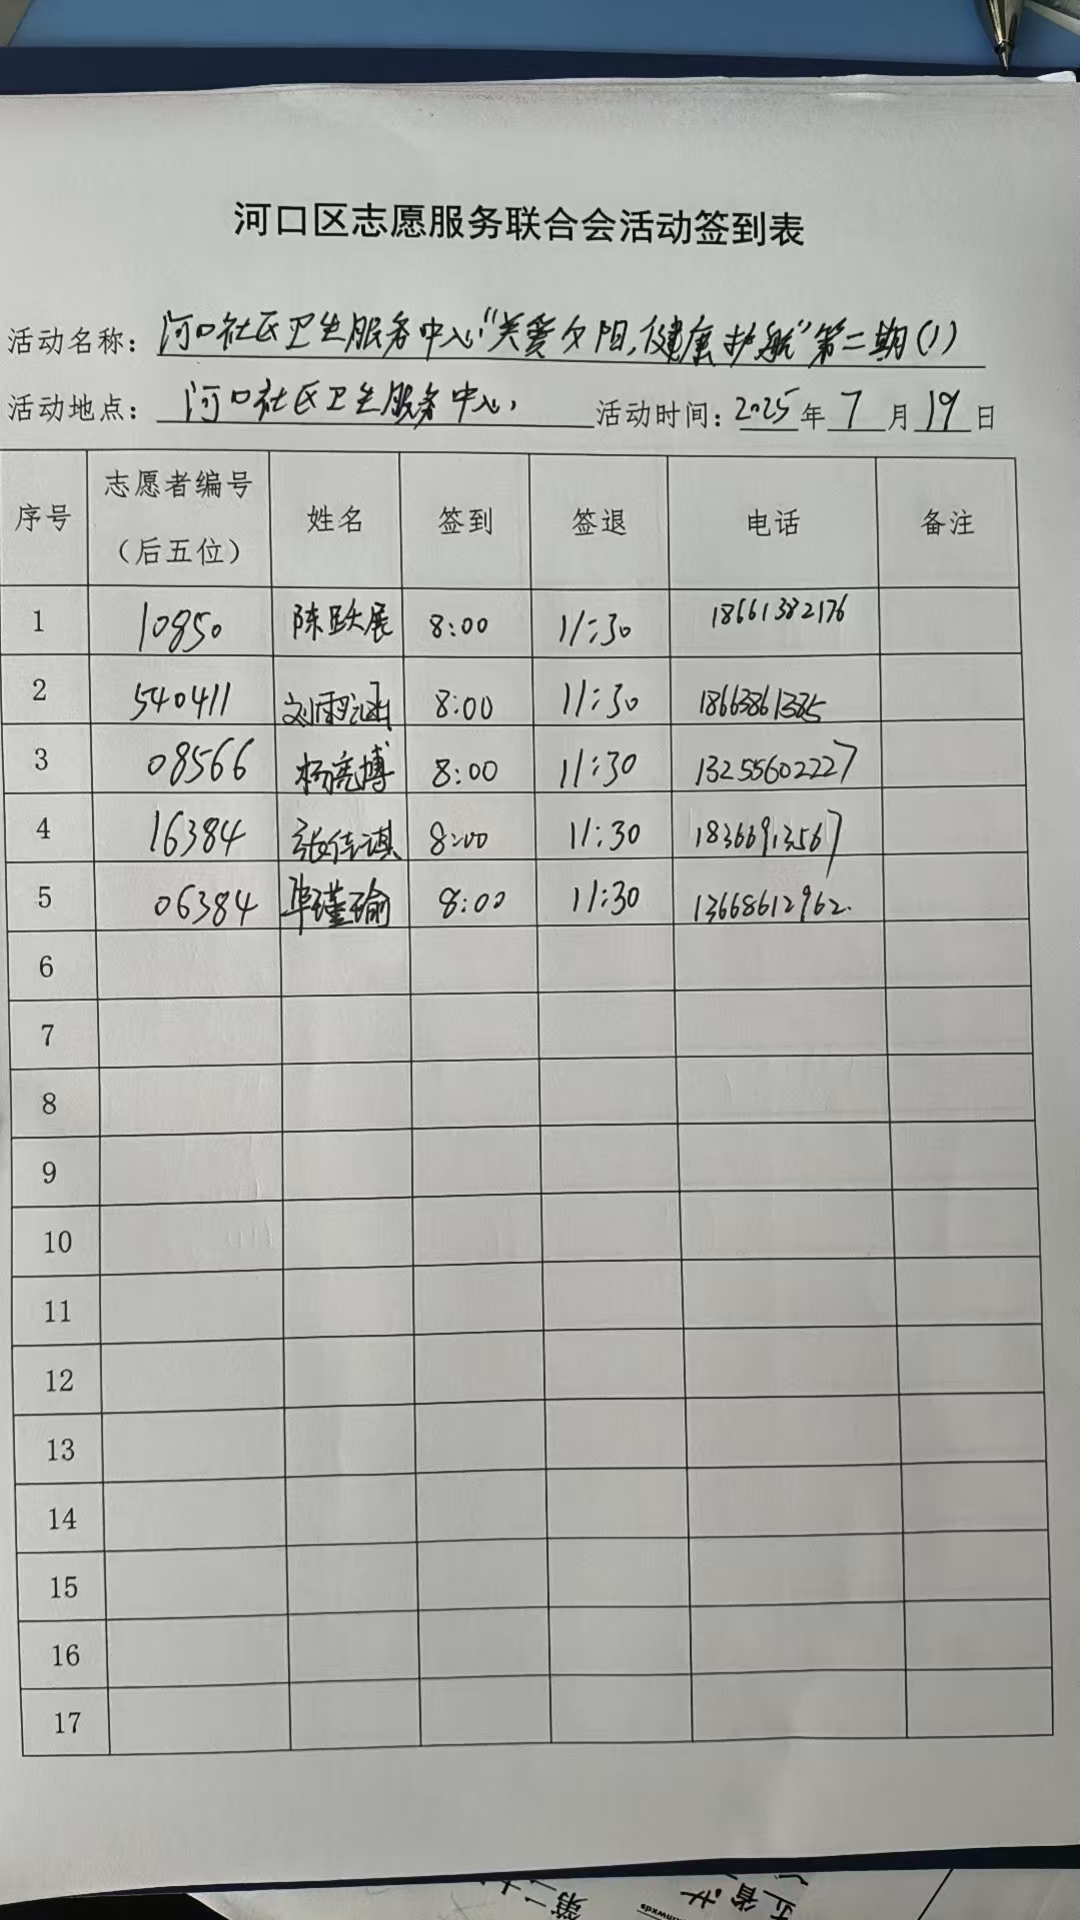 河口区志愿服务联合会活动签到表
活动名称：河口社区卫生服务中心“关爱夕阳，健康护航”第二期(1)
活动地点：河口社区卫生服务中心 活动时间：2025年7月19日
序号 志愿者编号（后五位） 姓名 签到 签退 电话 备注
1 10850 陈跃展 8:00 11:30 18661382176
2 540411 刘雨涵 8:00 11:30 18663861385
3 08566 杨亮博 8:00 11:30 13255602227
4 16384 张佳淇 8:00 11:30 18366913567
5 06384 毕瑾瑜 8:00 11:30 13668612962.
6
7
8
9
10
11
12
13
14
15
16
17